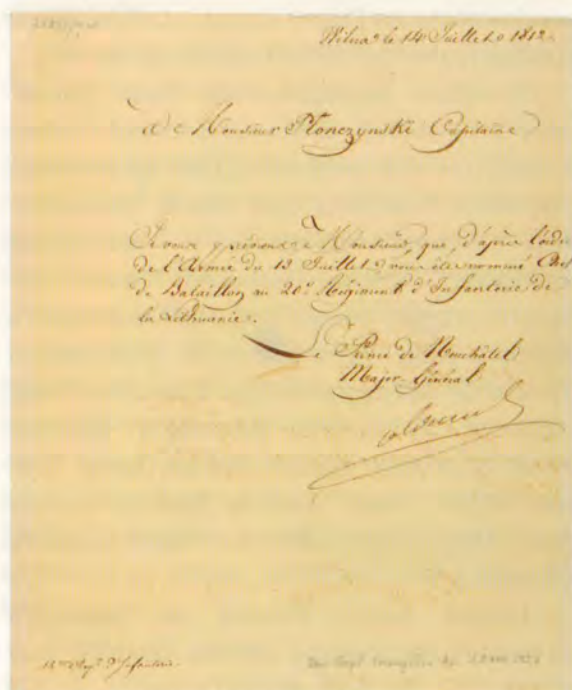 Wilna le 14 Juillet 1812.
A Monsieur Płonczynski Capitaine
Je vous préviens Monsieur, que, d'après l'ordre
de l'Armée du 13 Juillet vous êtes nommé Chef
de Bataillon au 20e Régiment d'Infanterie de
la Lithuanie.
Le Prince de Neuchâtel
Major-Général
Infanterie